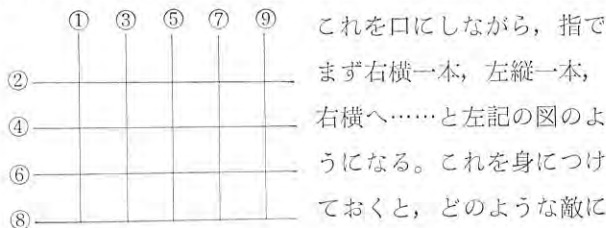 ① ③ ⑤ ⑦ ⑨
②
④
⑥
⑧
これを口にしながら，指で
まず右横一本，左縦一本，
右横へ……と左記の図のよ
うになる。これを身につけ
ておくと，どのような敵に